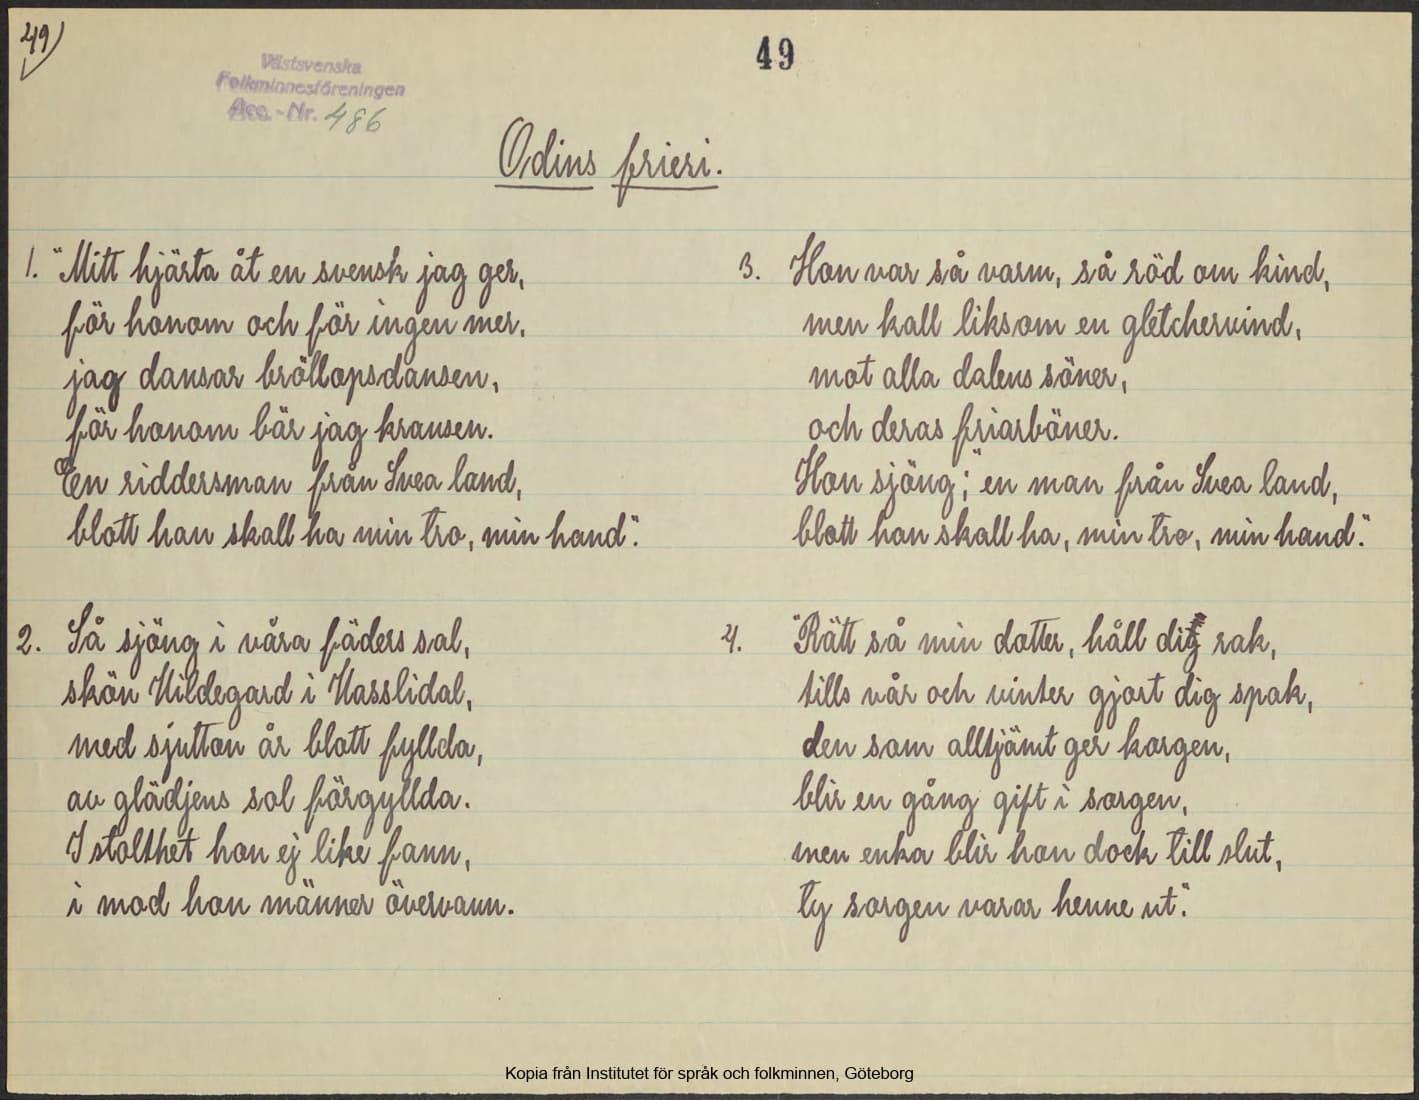 49
49
Västsvenska
Folkminnesföreningen
Acc.-Nr. 486
Odins frieri.
1. "Mitt hjärta åt en svensk jag ger,
för honom och för ingen mer,
jag dansar bröllopsdansen,
för honom bär jag kransen.
En riddersman från Svea land,
blott han skall ha min tro, min hand".
2. Så sjöng i våra fäders sal,
skön Hildegard i Hasslidal,
med sjutton år blott fyllda,
av glädjens sol förgyllda.
I stolthet hon ej like fann,
i mod hon männer övervann.
3. Hon var så varm, så röd om kind,
men kall liksom en gletchervind,
mot alla dalens söner,
och deras friarböner.
Hon sjöng; "en man från Svea land,
blott han skall ha, min tro, min hand".
4. "Rätt så min dotter, håll dig rak,
tills vår och vinter gjort dig spak,
den som alltjämt ger korgen,
blir en gång gift i sorgen,
men enka blir hon dock till slut,
ty sorgen varar henne ut".
Kopia från Institutet för språk och folkminnen, Göteborg